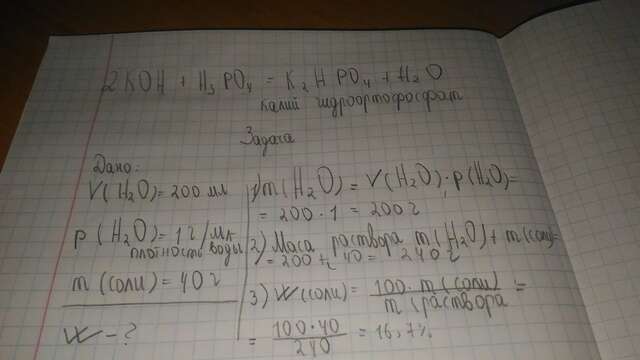 2KOH + H₃PO₄ = K₂HPO₄ + H₂O
калий гидроортофосфат
Задача
Дано:
V(H₂O) = 200 мл
ρ(H₂O) = 1 г/мл
плотность воды
m(соли) = 40 г
W - ?
1) m(H₂O) = V(H₂O) · ρ(H₂O) =
= 200 · 1 = 200 г
2) Маса раствора m(H₂O) + m(соли) =
= 200 + 40 = 240 г
3) W(соли) = 100 · m(соли) / m раствора =
= 100 · 40 / 240 = 16,7%